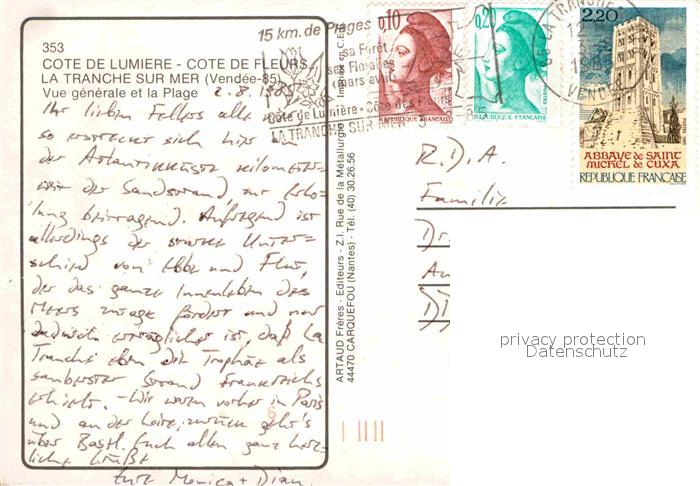 353
COTE DE LUMIERE - COTE DE FLEURS
LA TRANCHE SUR MER (Vendée-85)
Vue générale et la Plage
2.8.1985
Ihr lieben Fellers alle
so erstreckt sich hier an
der Atlantikküste kilometer-
weit der Sandstrand, zur Erho-
lung beitragend. Aufregend ist
allerdings der starke Unter-
schied von Ebbe und Flut,
der das ganze Innenleben des
Meers zutage fördert und nur
dadurch erträglicher ist, daß La
Tranche eben die Trophäe als
sauberster Strand Frankreichs
erhielt. - Wir waren vorher in Paris
und an der Loire, zurück geht's
über Basel. Euch allen ganz herz-
liche Grüße
Eure Monica + Dian
ARTAUD Frères - Editeurs - Z.I. Rue de la Métallurgie
44470 CARQUEFOU (Nantes) - Tél. (40) 30.26.56
Imprimé en C.E.E.
15 km. de Plages
sa Forêt
ses Floralies
mars avril
Côte de Lumière - Côte des Fleurs
LA TRANCHE SUR MER
0,10
REPUBLIQUE FRANCAISE
0,20
REPUBLIQUE FRANCAISE
LA TRANCHE
VENDEE
2,20
ABBAYE DE SAINT
MICHEL DE CUXA
REPUBLIQUE FRANÇAISE
R.D.A.
Familie
Dr.
An
privacy protection
Datenschutz
6